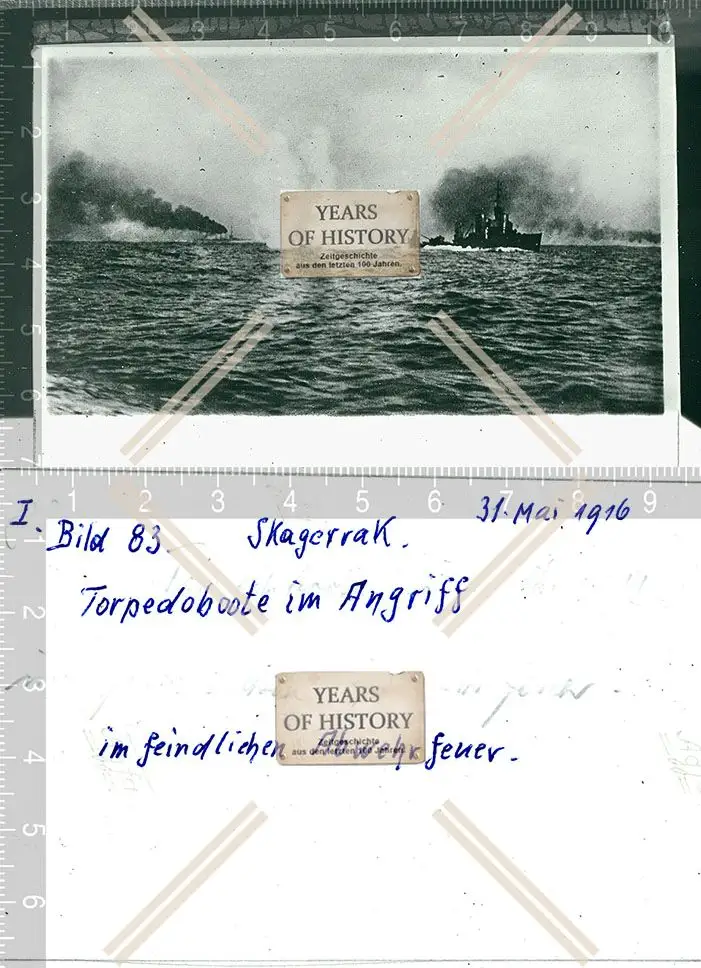 1 2 3 4 5 6 7 8 9 10
1
2
3
4
5
6
7
YEARS
OF HISTORY
Zeitgeschichte
aus den letzten 100 Jahren.
1 2 3 4 5 6 7 8 9
I.
Bild 83. Skagerrak. 31. Mai 1916
Torpedoboote im Angriff
YEARS
OF HISTORY
Zeitgeschichte
aus den letzten 100 Jahren.
im feindlichen Abwehrfeuer.
1
2
3
4
5
6